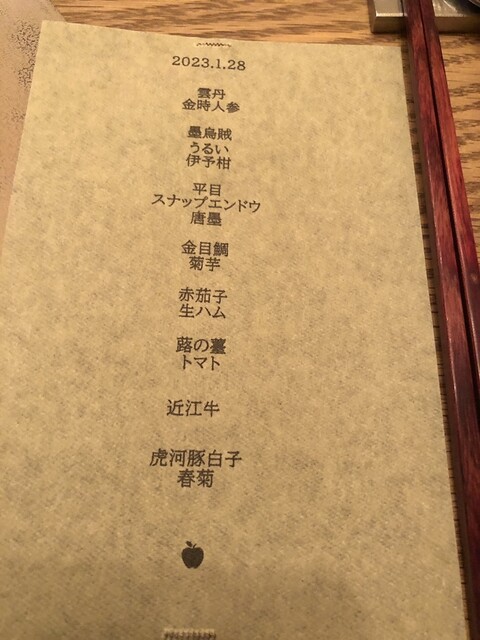 2023.1.28
雲丹
金時人参
墨烏賊
うるい
伊予柑
平目
スナップエンドウ
唐墨
金目鯛
菊芋
赤茄子
生ハム
蕗の薹
トマト
近江牛
虎河豚白子
春菊